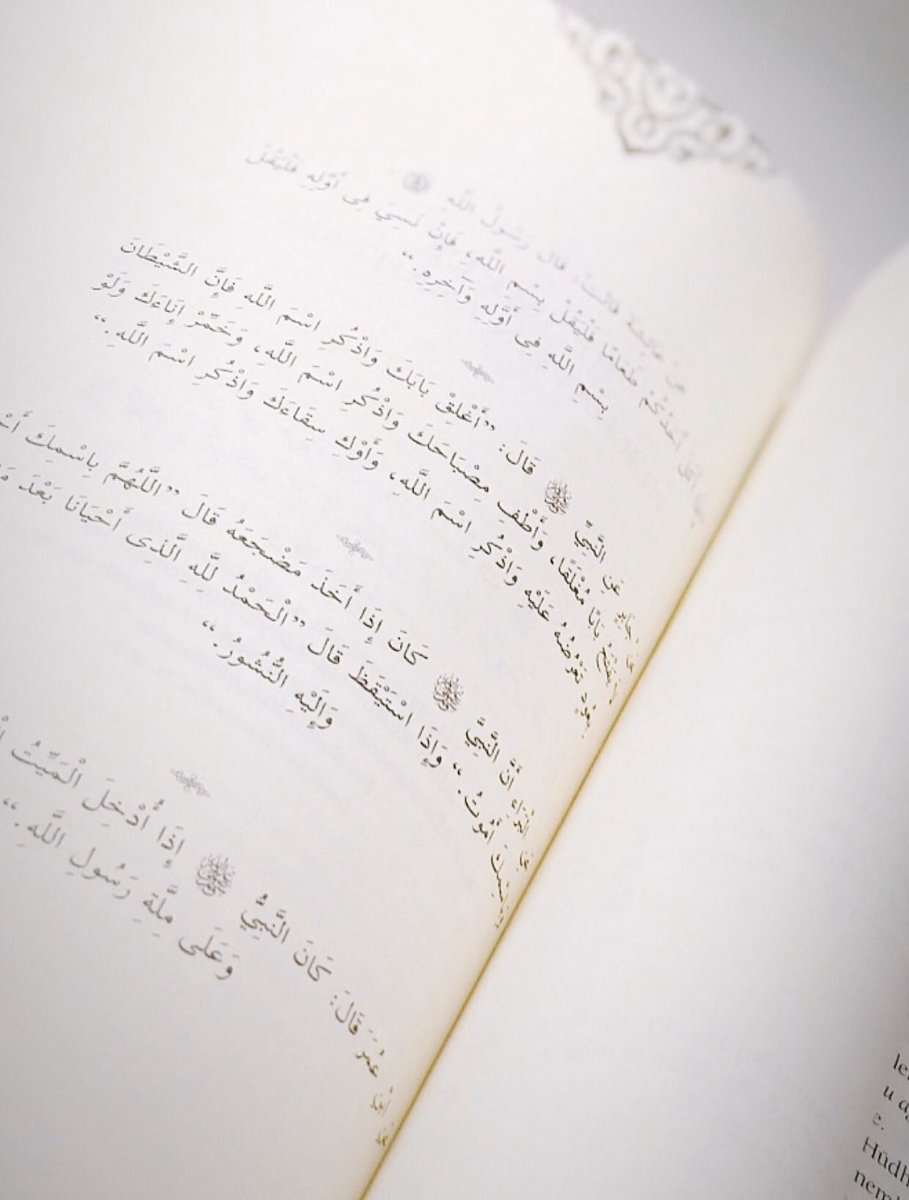 عَائِشَةَ قَالَتْ: قَالَ رَسُولُ اللَّهِ ﷺ
أَكَلَ أَحَدُكُمْ طَعَامًا فَلْيَقُلْ بِسْمِ اللَّهِ، فَإِنْ نَسِيَ فِي أَوَّلِهِ فَلْيَقُلْ
بِسْمِ اللَّهِ فِي أَوَّلِهِ وَآخِرِهِ.“
عَنْ جَابِرٍ عَنِ النَّبِيِّ ﷺ قَالَ: ”أَغْلِقْ بَابَكَ وَاذْكُرِ اسْمَ اللَّهِ فَإِنَّ الشَّيْطَانَ
لَا يَفْتَحُ بَابًا مُغْلَقًا، وَأَطْفِ مِصْبَاحَكَ وَاذْكُرِ اسْمَ اللَّهِ، وَخَمِّرْ إِنَاءَكَ وَلَوْ
بِعُودٍ تَعْرُضُهُ عَلَيْهِ وَاذْكُرِ اسْمَ اللَّهِ، وَأَوْكِ سِقَاءَكَ وَاذْكُرِ اسْمَ اللَّهِ.“
عَنِ الْبَرَاءِ أَنَّ النَّبِيَّ ﷺ كَانَ إِذَا أَخَذَ مَضْجَعَهُ قَالَ ”اللَّهُمَّ بِاسْمِكَ
وَبِاسْمِكَ أَمُوتُ.“ وَإِذَا اسْتَيْقَظَ قَالَ ”الْحَمْدُ لِلَّهِ الَّذِى أَحْيَانَا بَعْدَ
وَإِلَيْهِ النُّشُورُ.“
عَنِ ابْنِ عُمَرَ قَالَ: كَانَ النَّبِيُّ ﷺ إِذَا أُدْخِلَ الْمَيِّتُ
وَعَلَى مِلَّةِ رَسُولِ اللَّهِ.“
e.